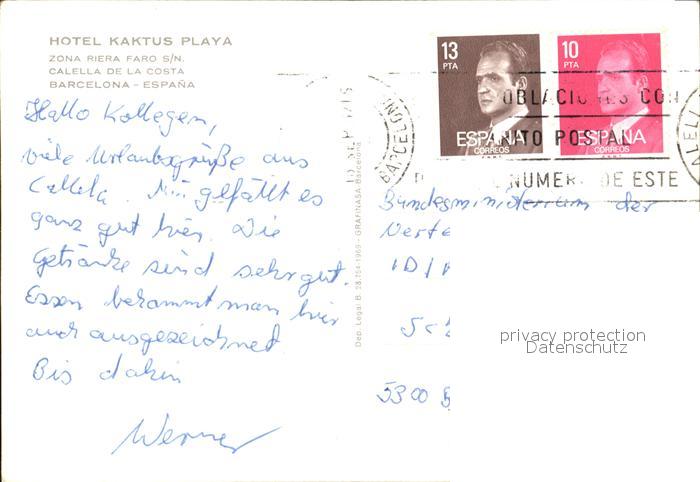 HOTEL KAKTUS PLAYA
ZONA RIERA FARO S/N.
CALELLA DE LA COSTA
BARCELONA - ESPAÑA
Hallo Kollegen,
viele Urlaubsgrüße aus
Calella. Mir gefällt es
ganz gut hier. Die
Getränke sind sehr gut.
Essen bekommt man hier
auch ausgezeichnet
Bis dahin
Werner
Dep. Lega: B. 28.764-1969 - GRAFINASA-Barcelona
13 PTA
ESPAÑA
CORREOS
10 PTA
ESPAÑA
CORREOS
BARCELONA
POBLACIONES CON
POSTAL
NUMER DE ESTE
Bundesministerium der
Verte
ID/
5300
privacy protection
Datenschutz